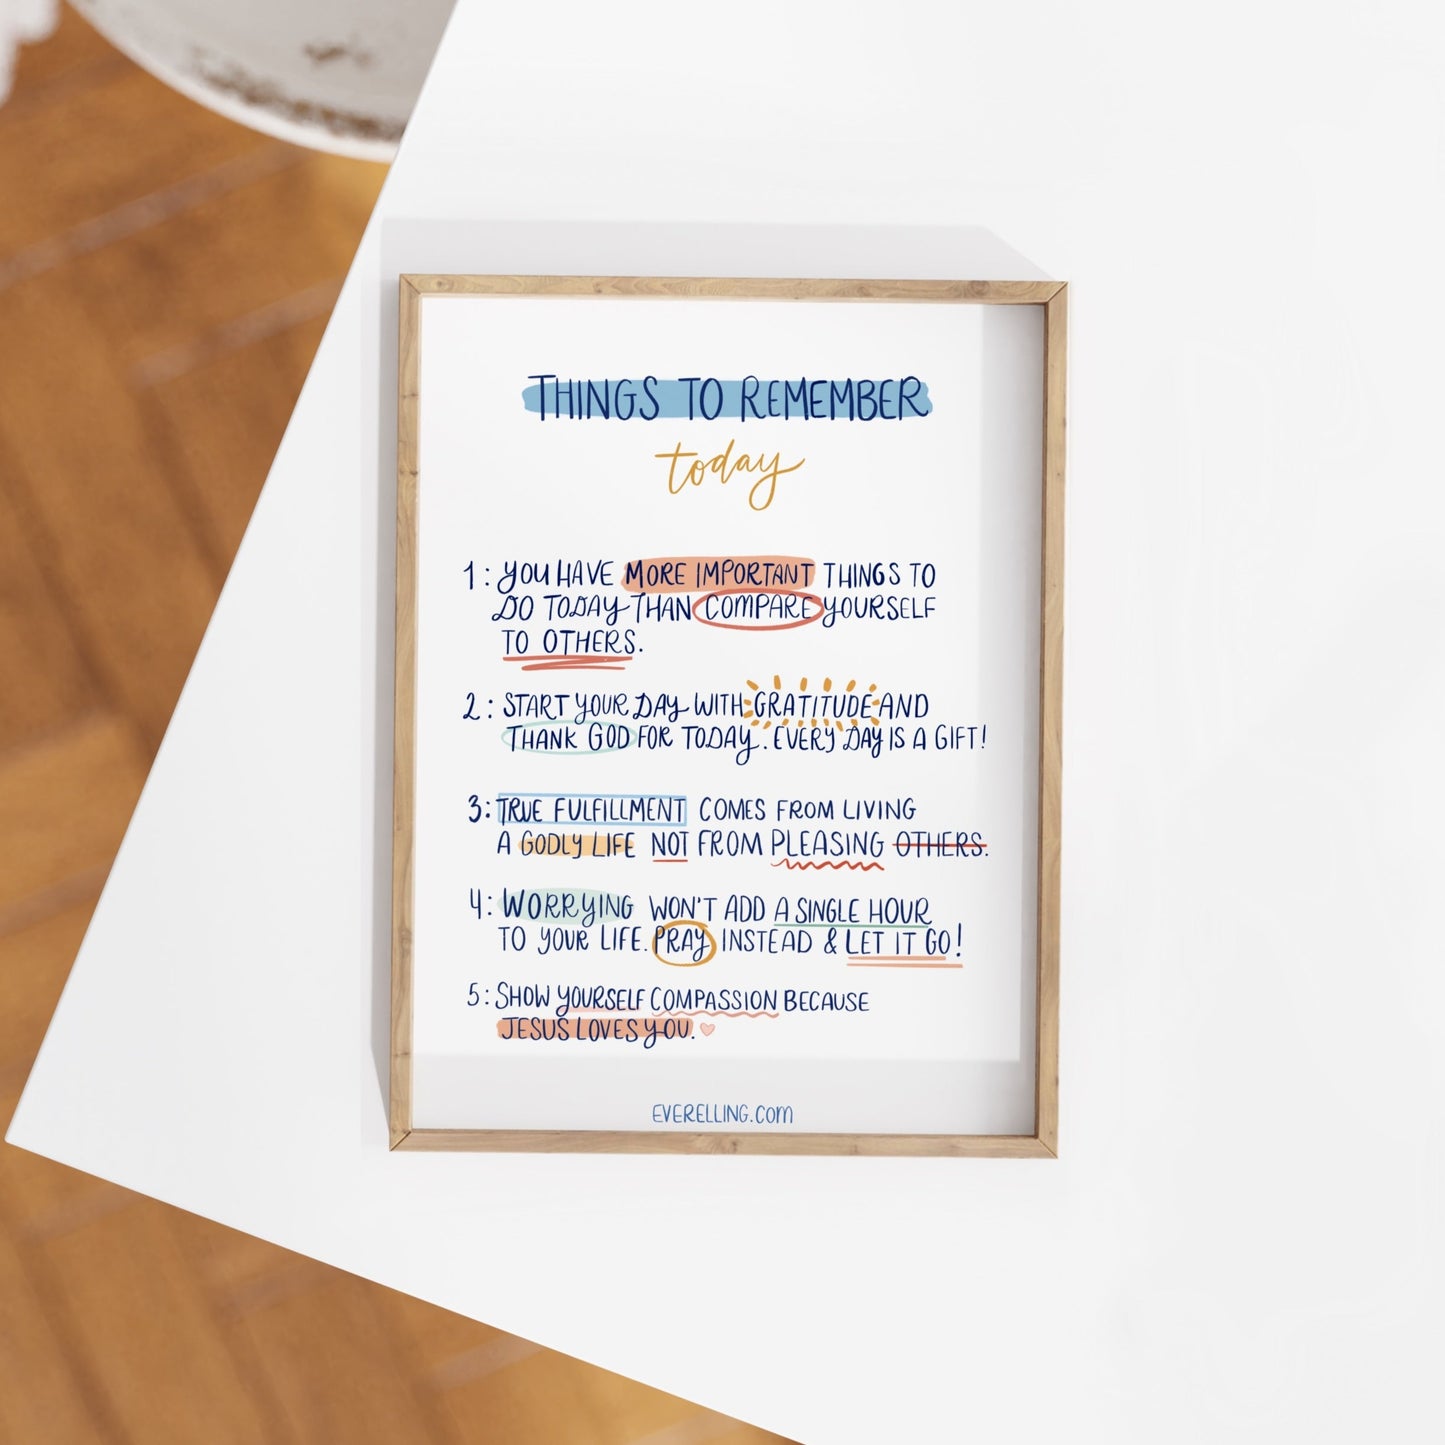 THINGS TO REMEMBER
today
1: YOU HAVE MORE IMPORTANT THINGS TO
DO TODAY THAN COMPARE YOURSELF
TO OTHERS.
2: START YOUR DAY WITH GRATITUDE AND
THANK GOD FOR TODAY. EVERY DAY IS A GIFT!
3: TRUE FULFILLMENT COMES FROM LIVING
A GODLY LIFE NOT FROM PLEASING OTHERS.
4: WORRYING WON'T ADD A SINGLE HOUR
TO YOUR LIFE. PRAY INSTEAD & LET IT GO!
5: SHOW YOURSELF COMPASSION BECAUSE
JESUS LOVES YOU.
EVERELLING.com